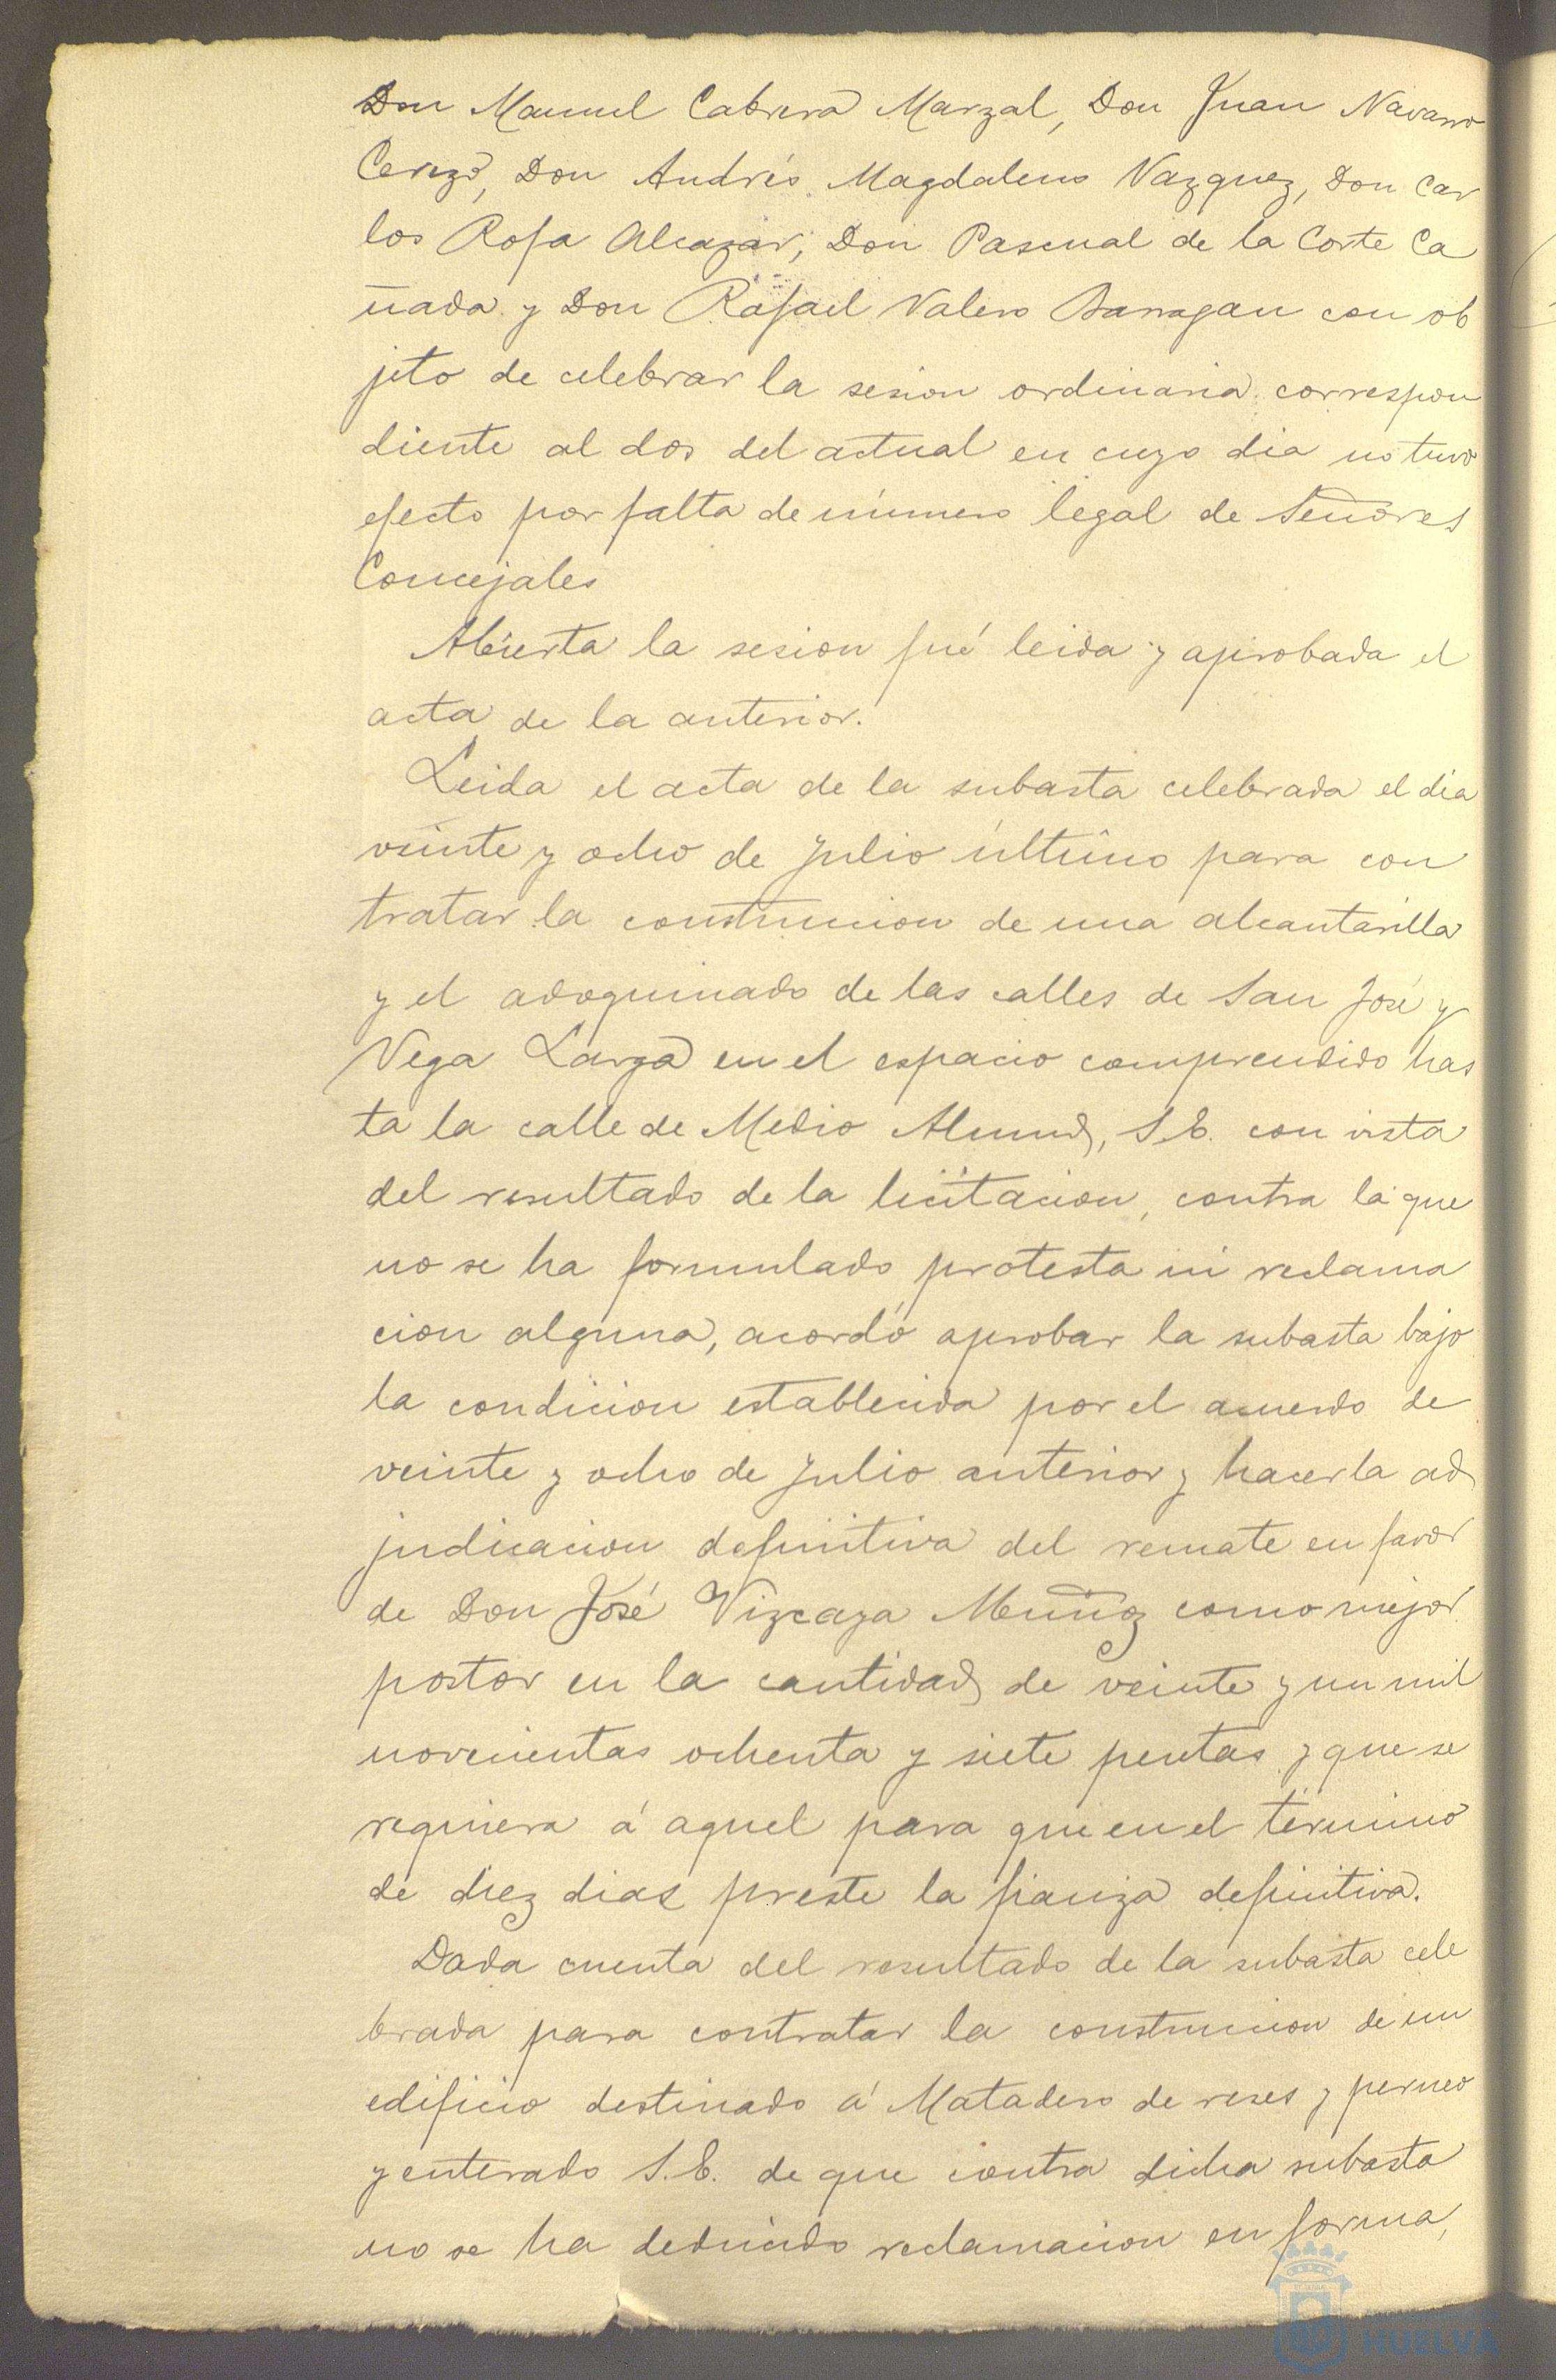 Don Manuel Cabrera Marzal, Don Juan Navarro
Cerezo, Don Andrés Magdaleno Vazquez, Don Car
los Rofa Alcazar, Don Pascual de la Corte Ca
ñada y Don Rafael Valero Barragan con ob
jeto de celebrar la sesion ordinaria correspon
diente al dos del actual en cuyo dia no tuvo
efecto por falta de número legal de Señores
Concejales
Abierta la sesion fué leida y aprobada el
acta de la anterior.
Leida el acta de la subasta celebrada el dia
veinte y ocho de Julio último para con
tratar la construccion de una alcantarilla
y el adoquinado de las calles de San José y
Vega Larga en el espacio comprendido has
ta la calle de Medio Almud, S.E. con vista
del resultado de la licitacion, contra la que
no se ha formulado protesta ni reclama
cion alguna, acordó aprobar la subasta bajo
la condicion establecida por el acuerdo de
veinte y ocho de Julio anterior y hacer la ad
judicacion definitiva del remate en favor
de Don José Vizcaya Muñoz como mejor
postor en la cantidad de veinte y un mil
novecientas ochenta y siete pesetas y que se
requiera á aquel para que en el término
de diez dias preste la fianza definitiva.
Dada cuenta del resultado de la subasta cele
brada para contratar la construccion de un
edificio destinado á Matadero de reses y perneo
y enterado S.E. de que contra dicha subasta
no se ha deducido reclamacion en forma,
HUELVA